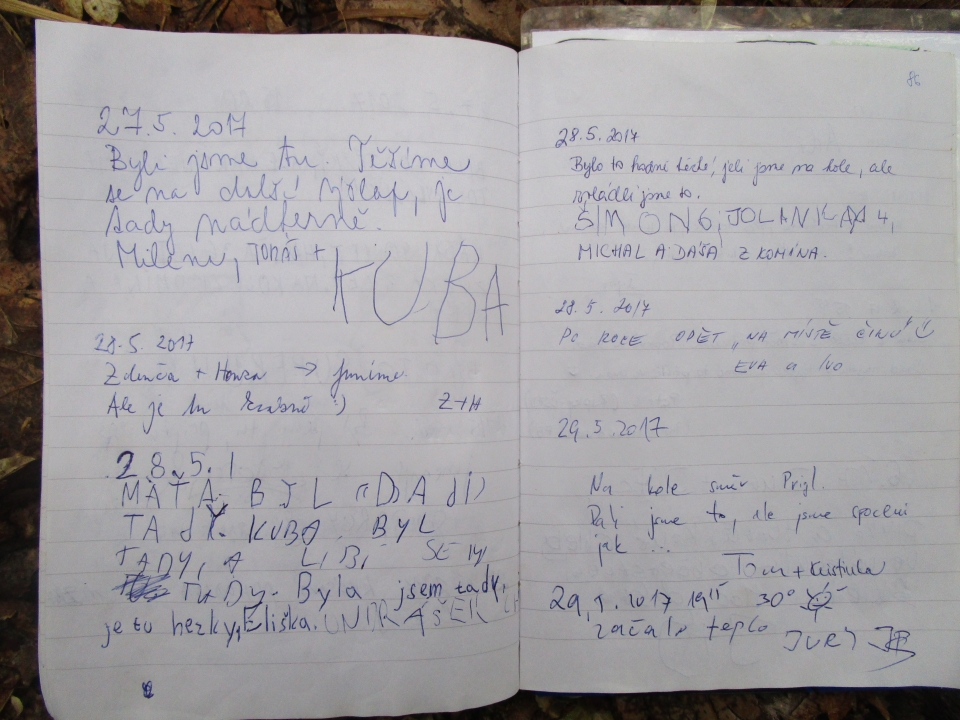 27.5. 2017
Byli jsme tu. Těšíme
se na další výšlap, je
tady nádherně.
Milena, TOMÁŠ +
KUBA
28.5. 2017
Zdenča + Honza → funíme.
Ale je tu krásně :) Z+H
28.5.1
MÁTA BJL
TADY. KUBA BYL
TADY, A LIBÍ SE MI
TADY. Byla jsem tady,
je to hezky, Eliška.
28.5. 2017
Bylo to hodně těžké, jeli jsme na kole, ale
zvládli jsme to.
ŠIMON 6, JOLANKA 4,
MICHAL A DÁŠA Z KOMÍNA.
28.5. 2017
PO ROCE OPĚT „NA MÍSTĚ ČINU"
EVA a IVO
29.5.2017
Na kole směr Prigl.
Dali jsme to, ale jsme spocení
jak ...
Tom + Kristinka
29.5.2017 19 30°
začalo teplo